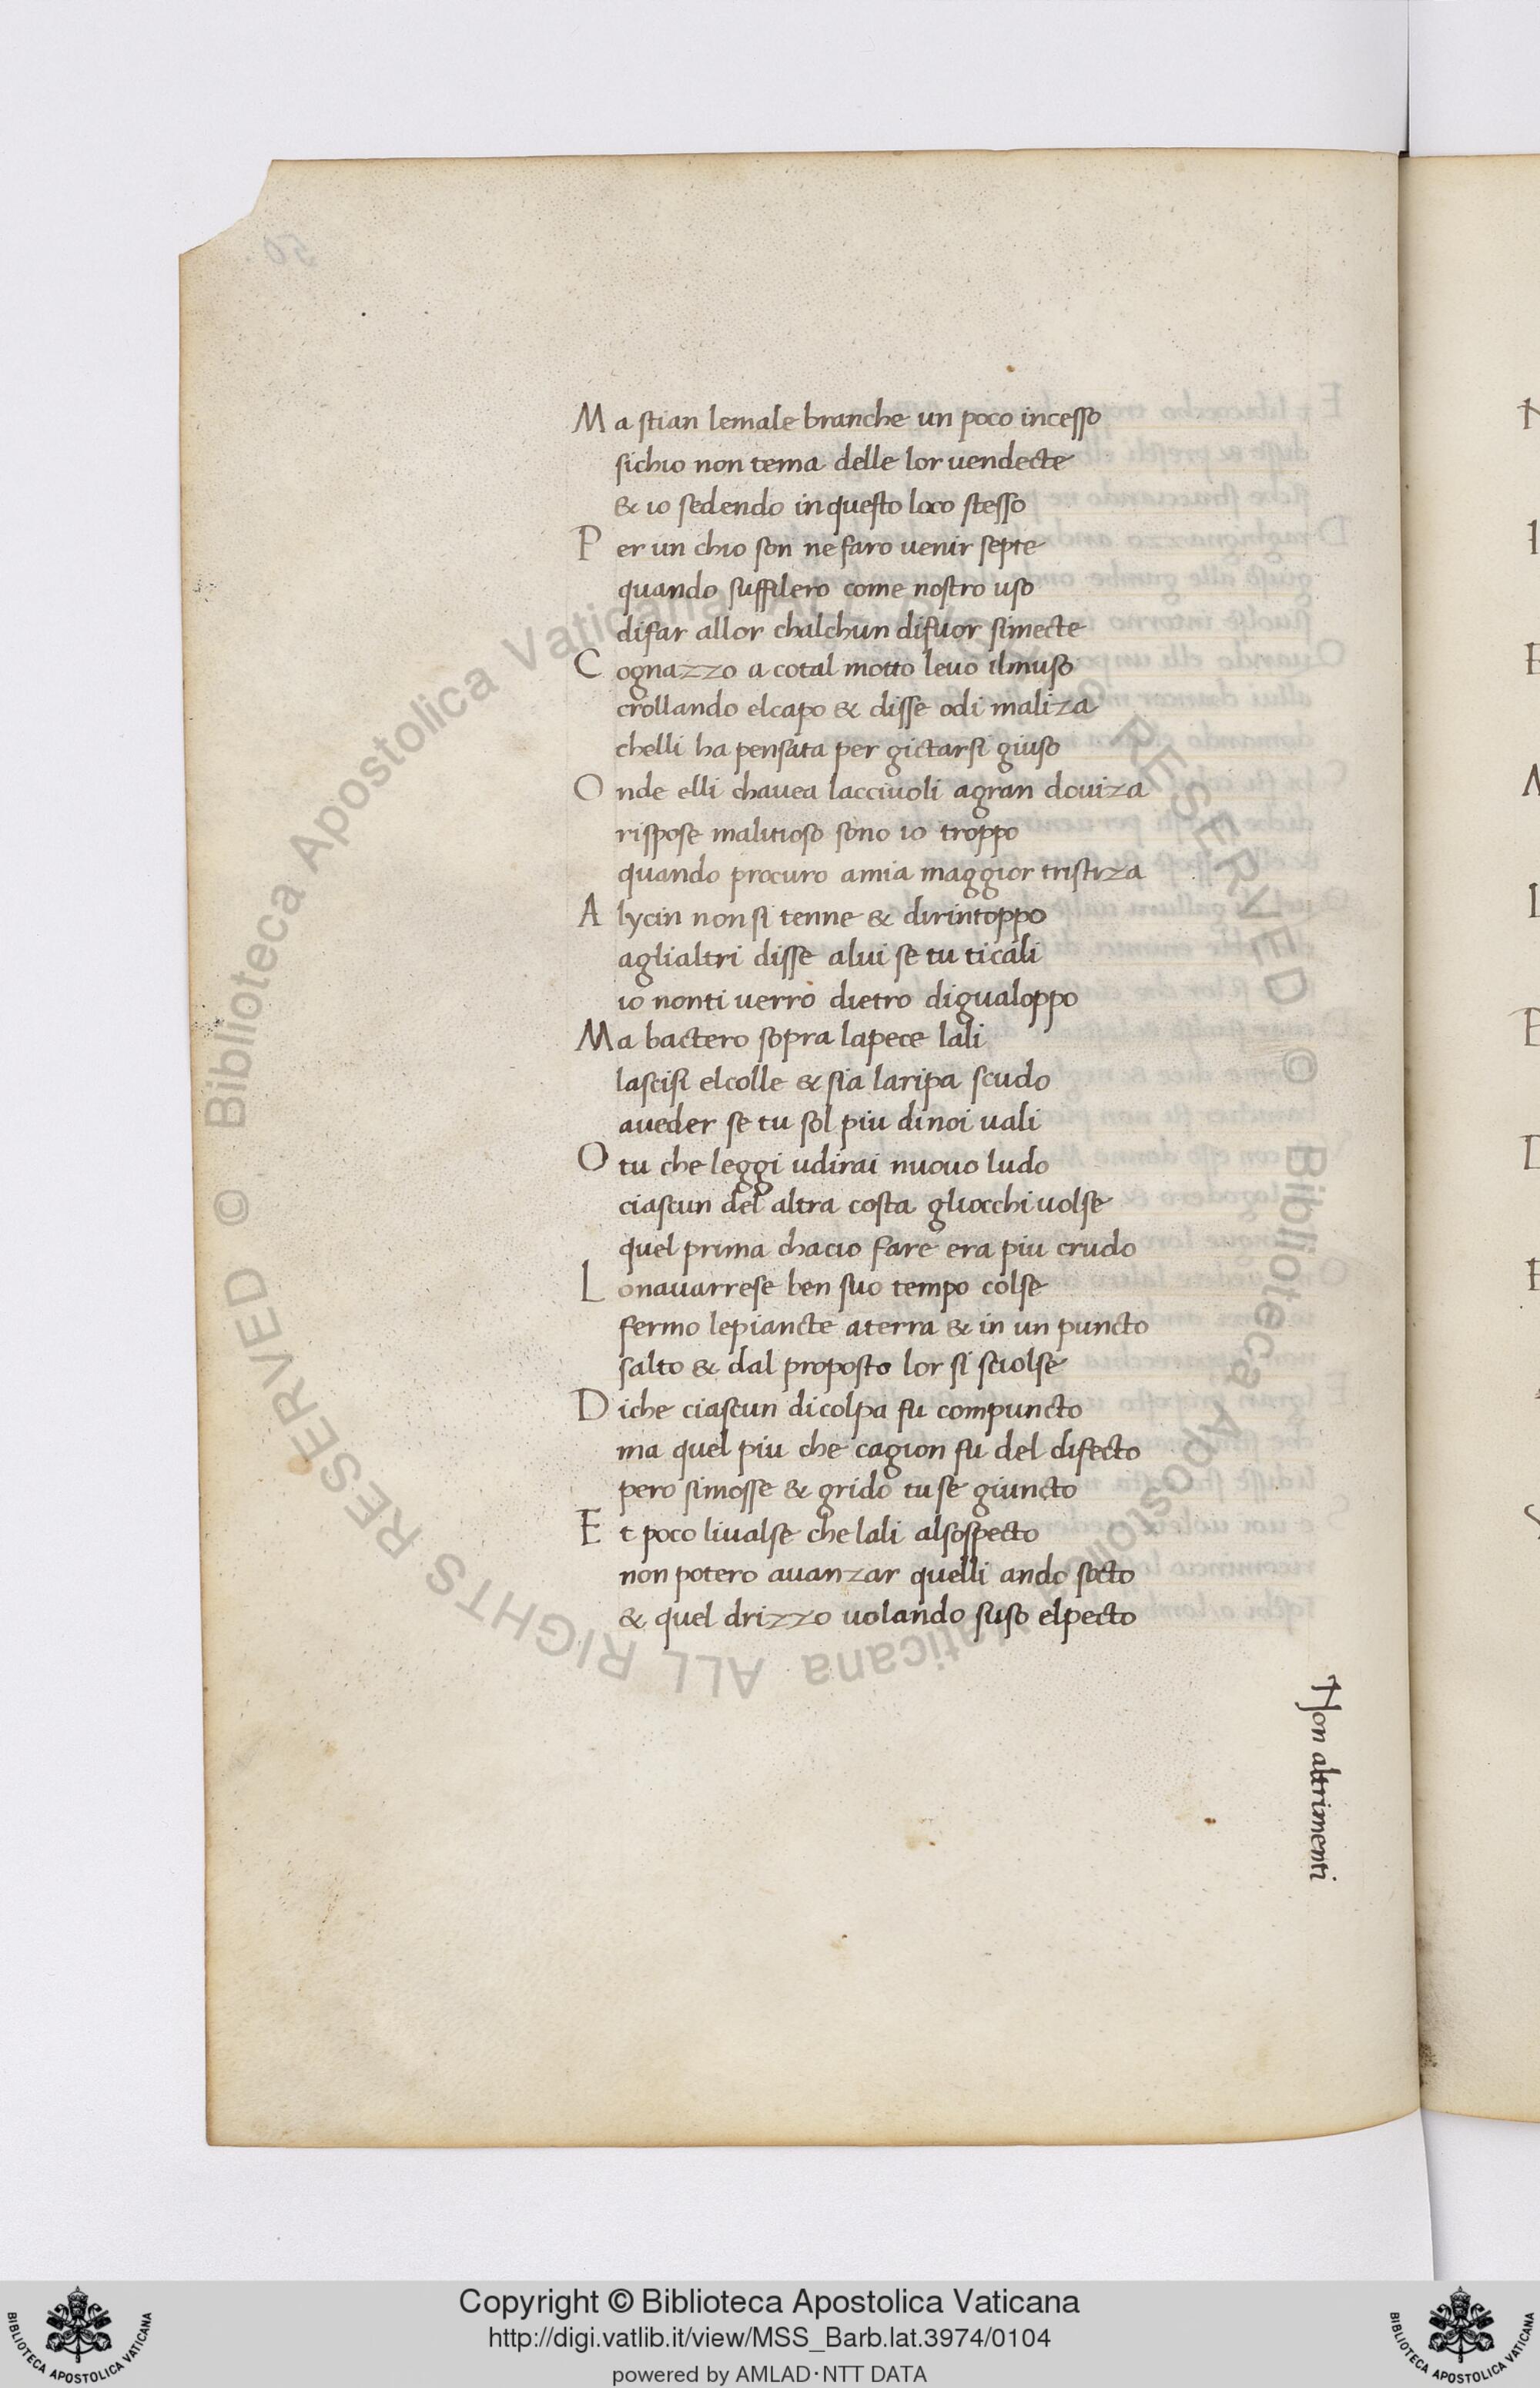 Ma stian lemale branche un poco incesso
sichio non tema delle lor uendecte
& io sedendo in questo loco stesso
Per un chio son ne faro uenir septe
quando suffilero come nostro uso
difar allor chalchun difuor simecte
Cognazzo a cotal motto leuo ilmuso
crollando elcapo & disse odi maliza
chelli ha pensata per gictarsi giuso
Onde elli chauea lacciuoli agran douiza
rispose malitioso sono io troppo
quando procuro amia maggior tristiza
Alycin non si tenne & dirintoppo
aglialtri disse alui se tu ticali
io nonti uerro dietro digualoppo
Ma bactero sopra lapece lali
lascisi elcolle & sia laripa scudo
aueder se tu sol piu dinoi uali
O tu che leggi udirai nuouo ludo
ciascun del altra costa gliocchi uolse
quel prima chacio fare era piu crudo
Lo nauarrese ben suo tempo colse
fermo lepiancte aterra & in un puncto
salto & dal proposto lor si sciolse
Diche ciascun dicolpa fu compuncto
ma quel piu che cagion fu del difecto
pero simosse & grido tu se giuncto
Et poco liualse che lali alsospecto
non potero auanzar quelli ando socto
& quel drizzo uolando suso elpecto
Non altrimenti
Copyright © Biblioteca Apostolica Vaticana
http://digi.vatlib.it/view/MSS_Barb.lat.3974/0104
powered by AMLAD·NTT DATA